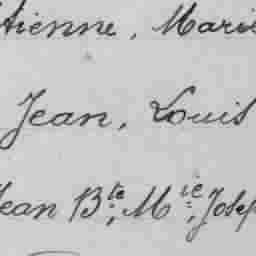 tienne, Marie
Jean, Louis
Jean Bte, Mie, Josep